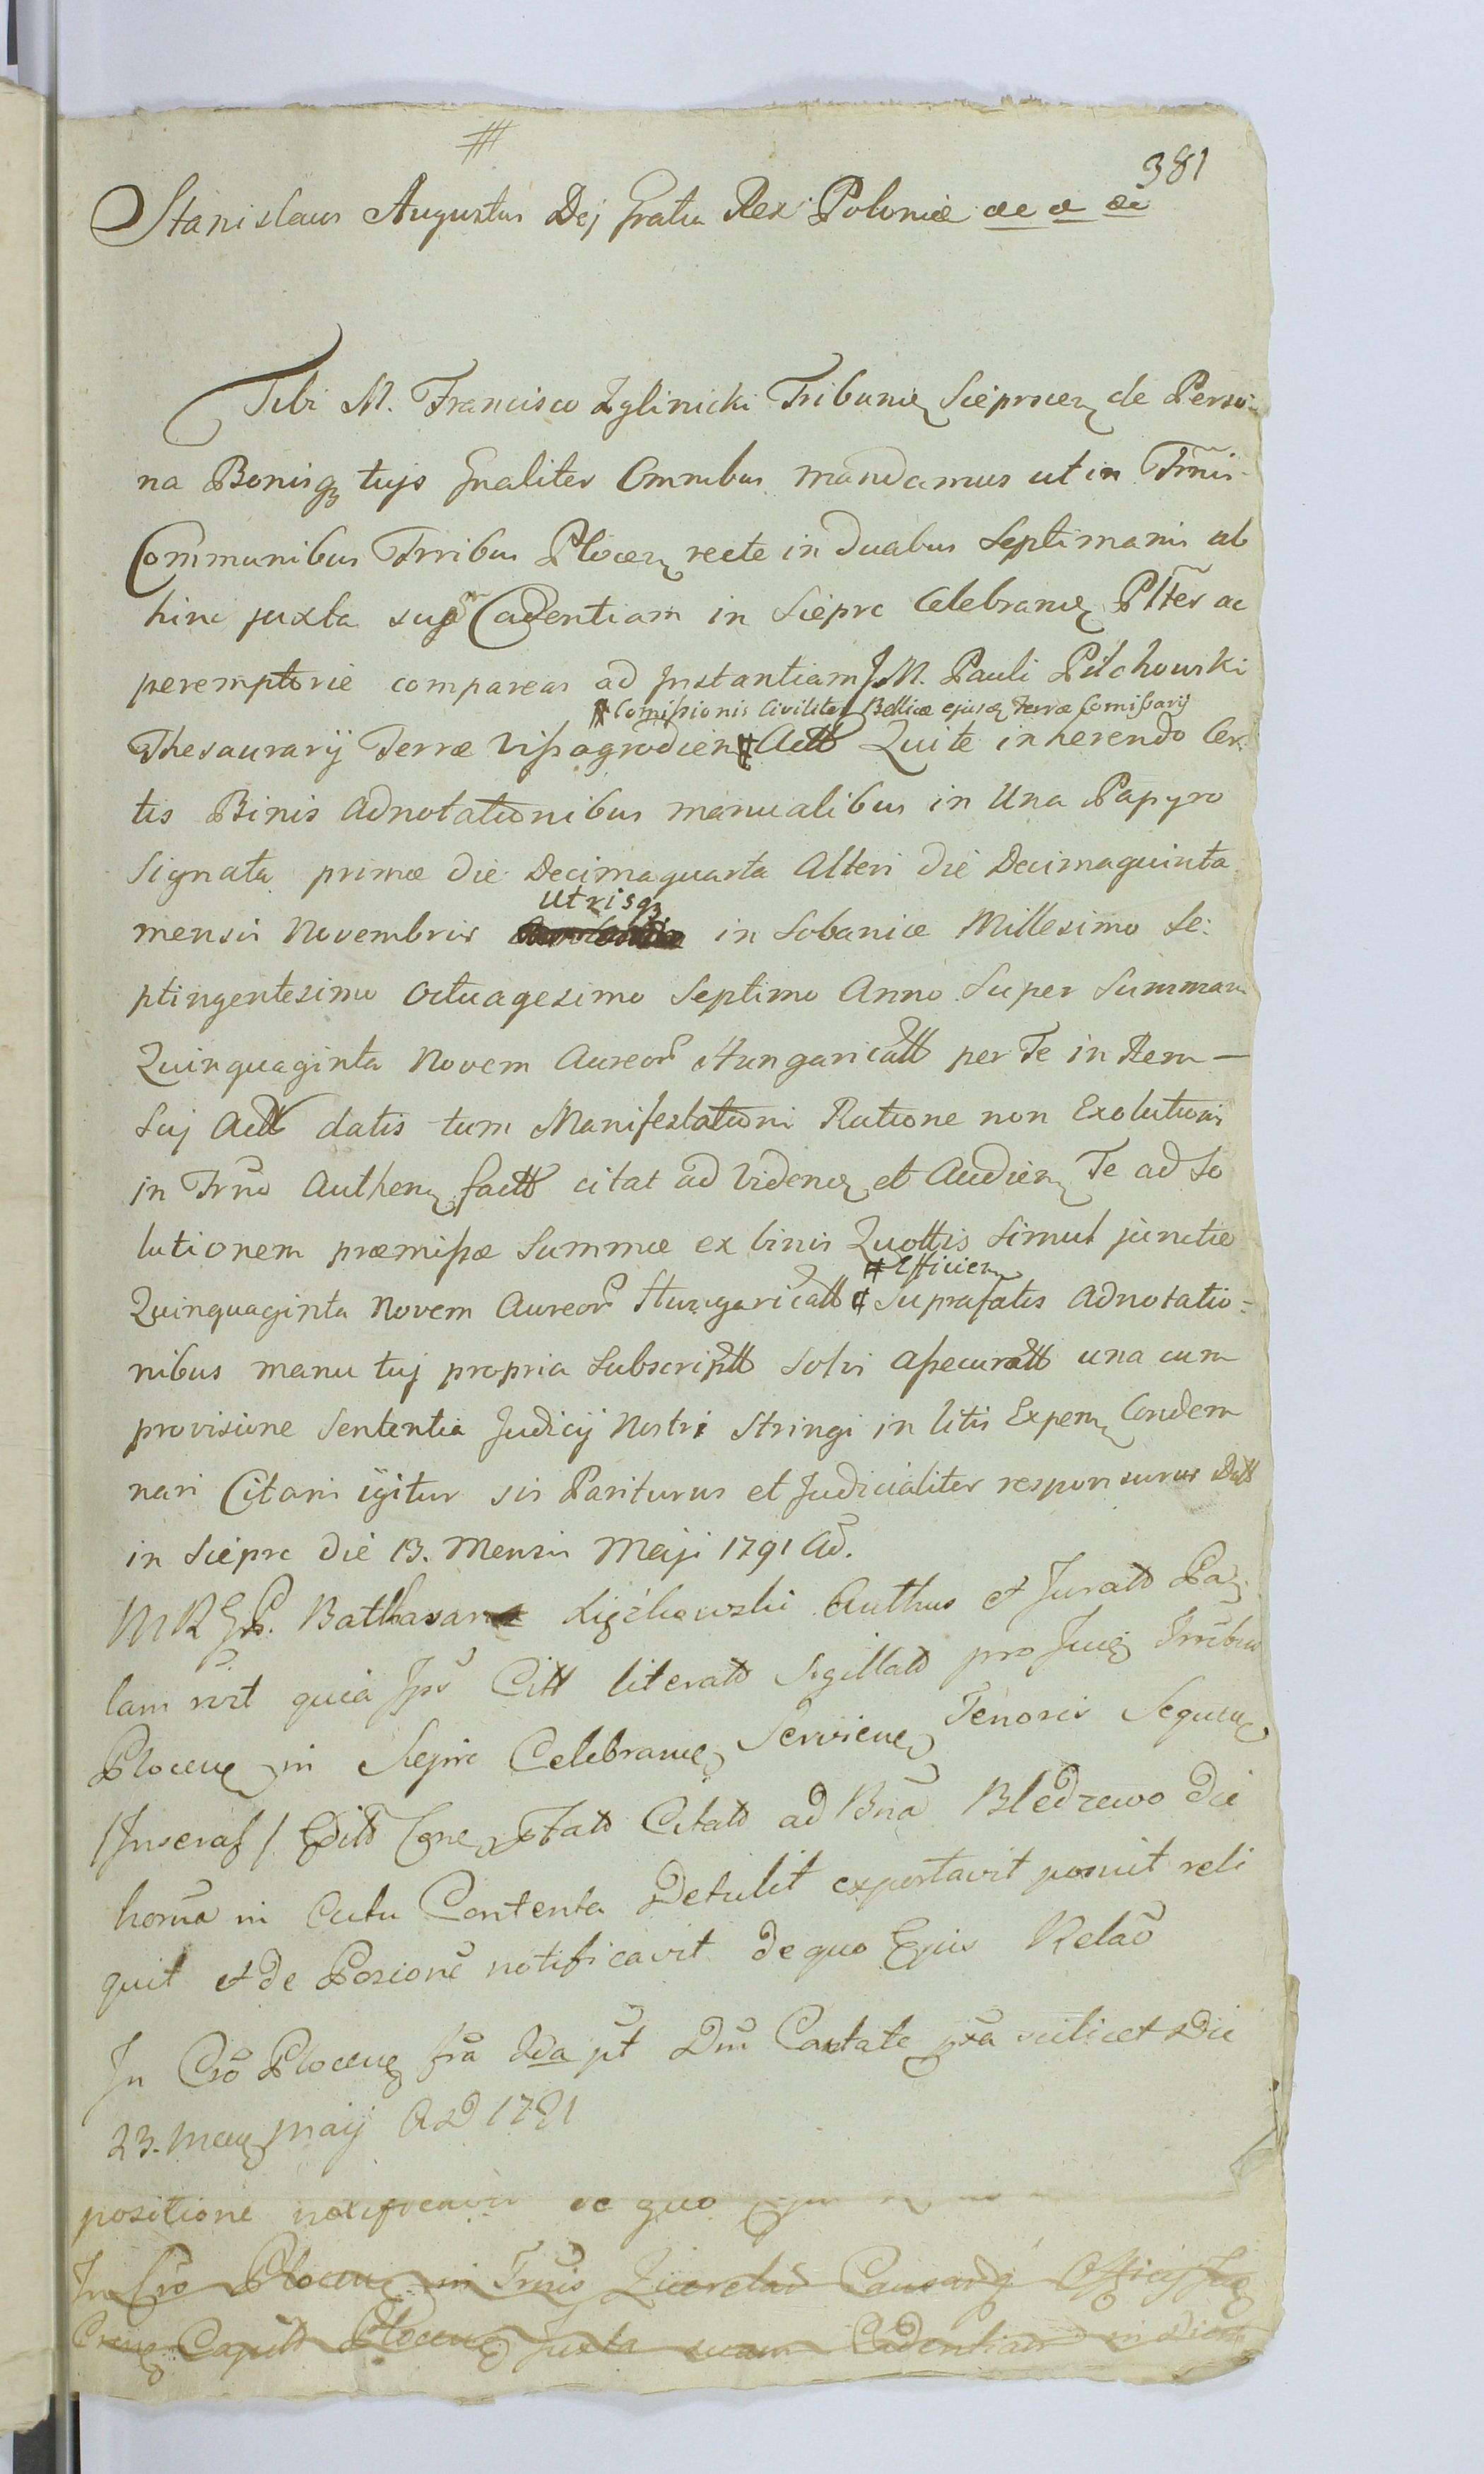 381
Stanislaus Augustus Dej Gratia Rex Poloniæ &c & &c
Tibi M. Francisco Zglinicki Tribunię Sieprcen de Perso-
na Bonisq tujs Gnaliter Omnibus mandamus ut in Trmis
Communibus Trribus Plocen recte in duabus Septimanis ab
hinc juxta suã Cadentiam in Sieprc Celebran Pltter ac
peremptorie compareas ad Instantiam J M. Pauli Pilchowski
# Comissionis Civiliter Bellicæ ejusd Terræ Comissarij
Thesaurarij Terræ Vissogrodien # Actt Qui te inherendo Cer-
tis Binis Adnotationibus manualibus in Una Papyro
Signata primæ die Decimaquarta Alteri die Decimaquinta
utrisq
mensis Novembris in Sobanice Millesimo Se:
ptingentesimo Octuagesimo Septimo Anno Super Summam
Quinquaginta Novem Aureor Hungaricatt per Te in Rem
Suj Actt datis tum Manifestationi Ratione non Exolutionis
in Trnõ Authen factt citat ad Viden et Audien Te ad So
lutionem præmissæ Summæ ex binis Quottis simul junctæ
# Efficien
Quinquaginta Novem Aureor Hungaricatt # Suprafatis Adnotatio=
nibus manu tuj propria Subscriptt Solvi Assecuratt una cum
provisione Sententia Judicij Nostri Stringi in litis Expen Condem
nari Citari igitur sis Pariturus et Judicialiter responsurus Datt
in Sieprc die 13. Mensis Maji 1791 Ad.
M R Gs P. Balthasar Authus et Juratt Pa
lam rrt quia Citt literatt Sigillatt pro Judę Trribus
Plocen in Sieprc Celebran Servien Tenoris Sequen
/ Inserat / Editt Cone Citatt ad Bna Bledzewo die
horũa in Actu Contenta Detulit exportavit posuit reli
quit et de Posione notificavit de quo Ejus Relaõ
In Crõ Plocen frã 2da pt Dm Cantate pxa scilicet Die
23. Men Maij A D 1791
positione notificavit de quo
In Crõ Plocen in Trmis Querelar Causarq Officij
Capitt Plocen Juxta suam Cadentiam in Siepr